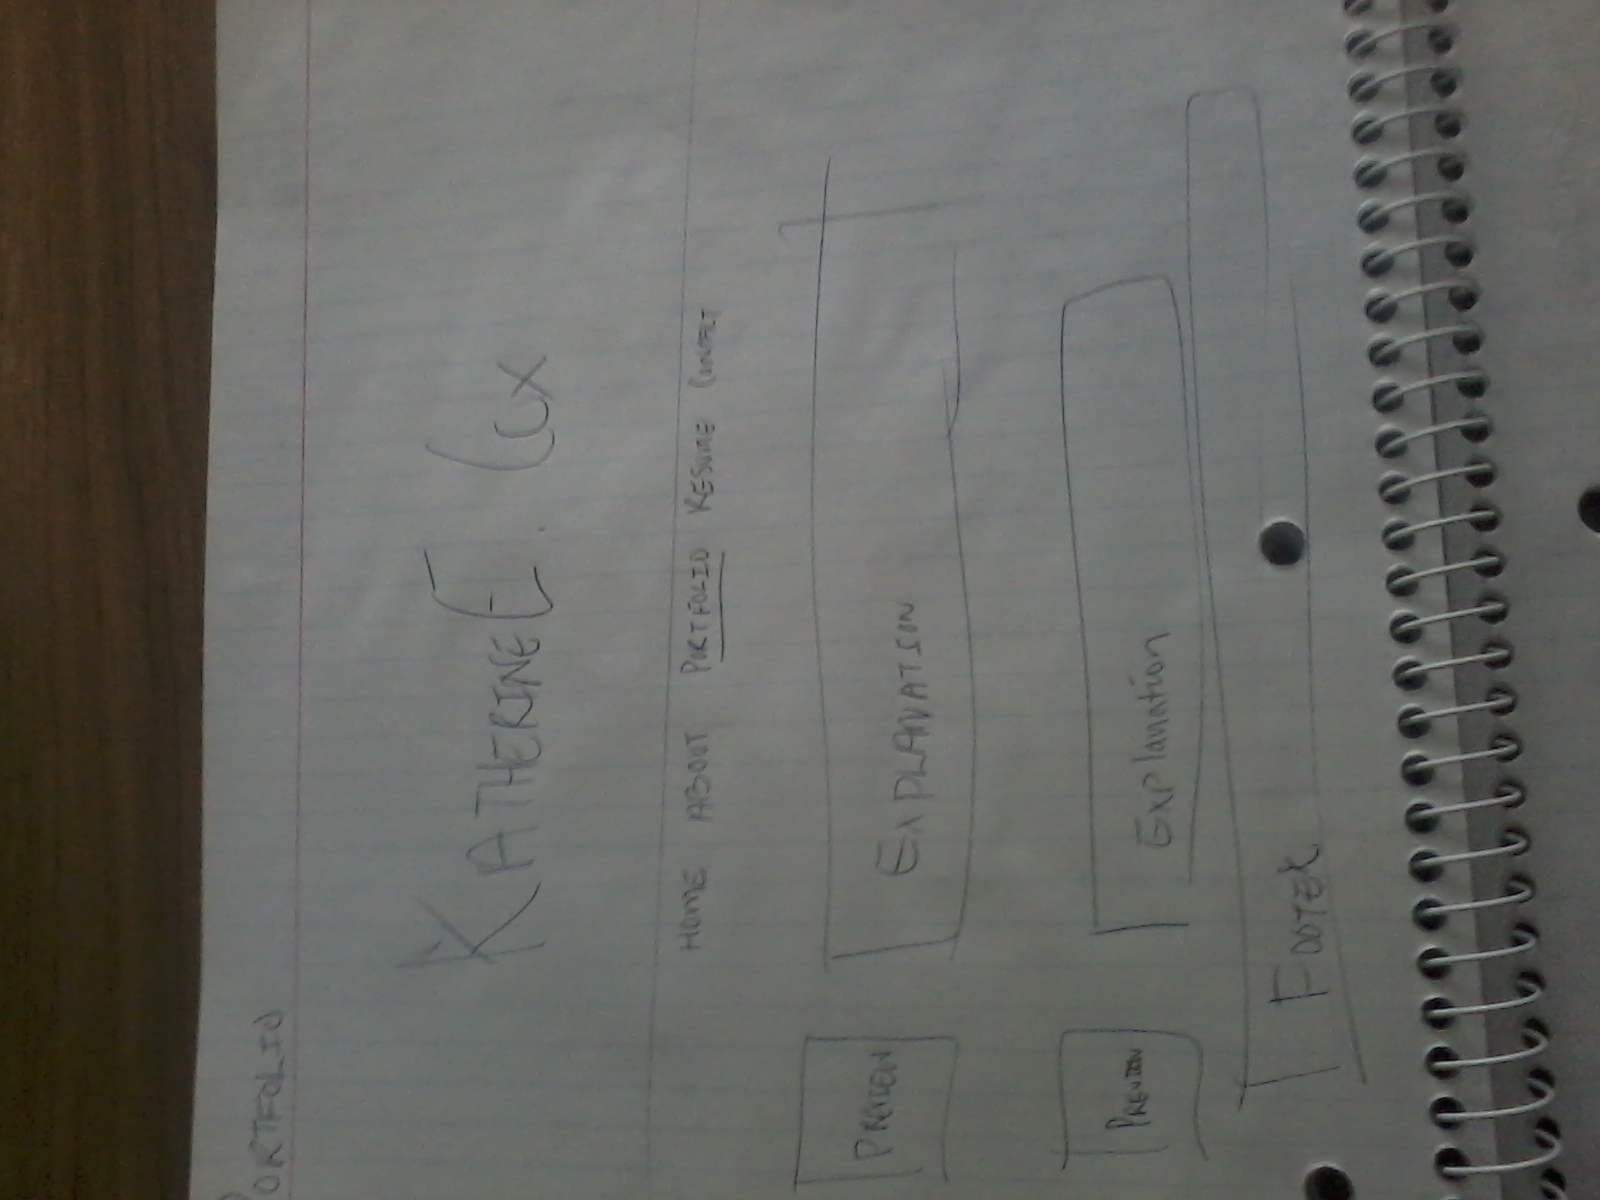 PORTFOLIO
KATHERINE E. COX
HOME ABOUT PORTFOLIO RESUME CONTACT
PREVIEW EXPLANATION
PREVIEW Explanation
FOOTER